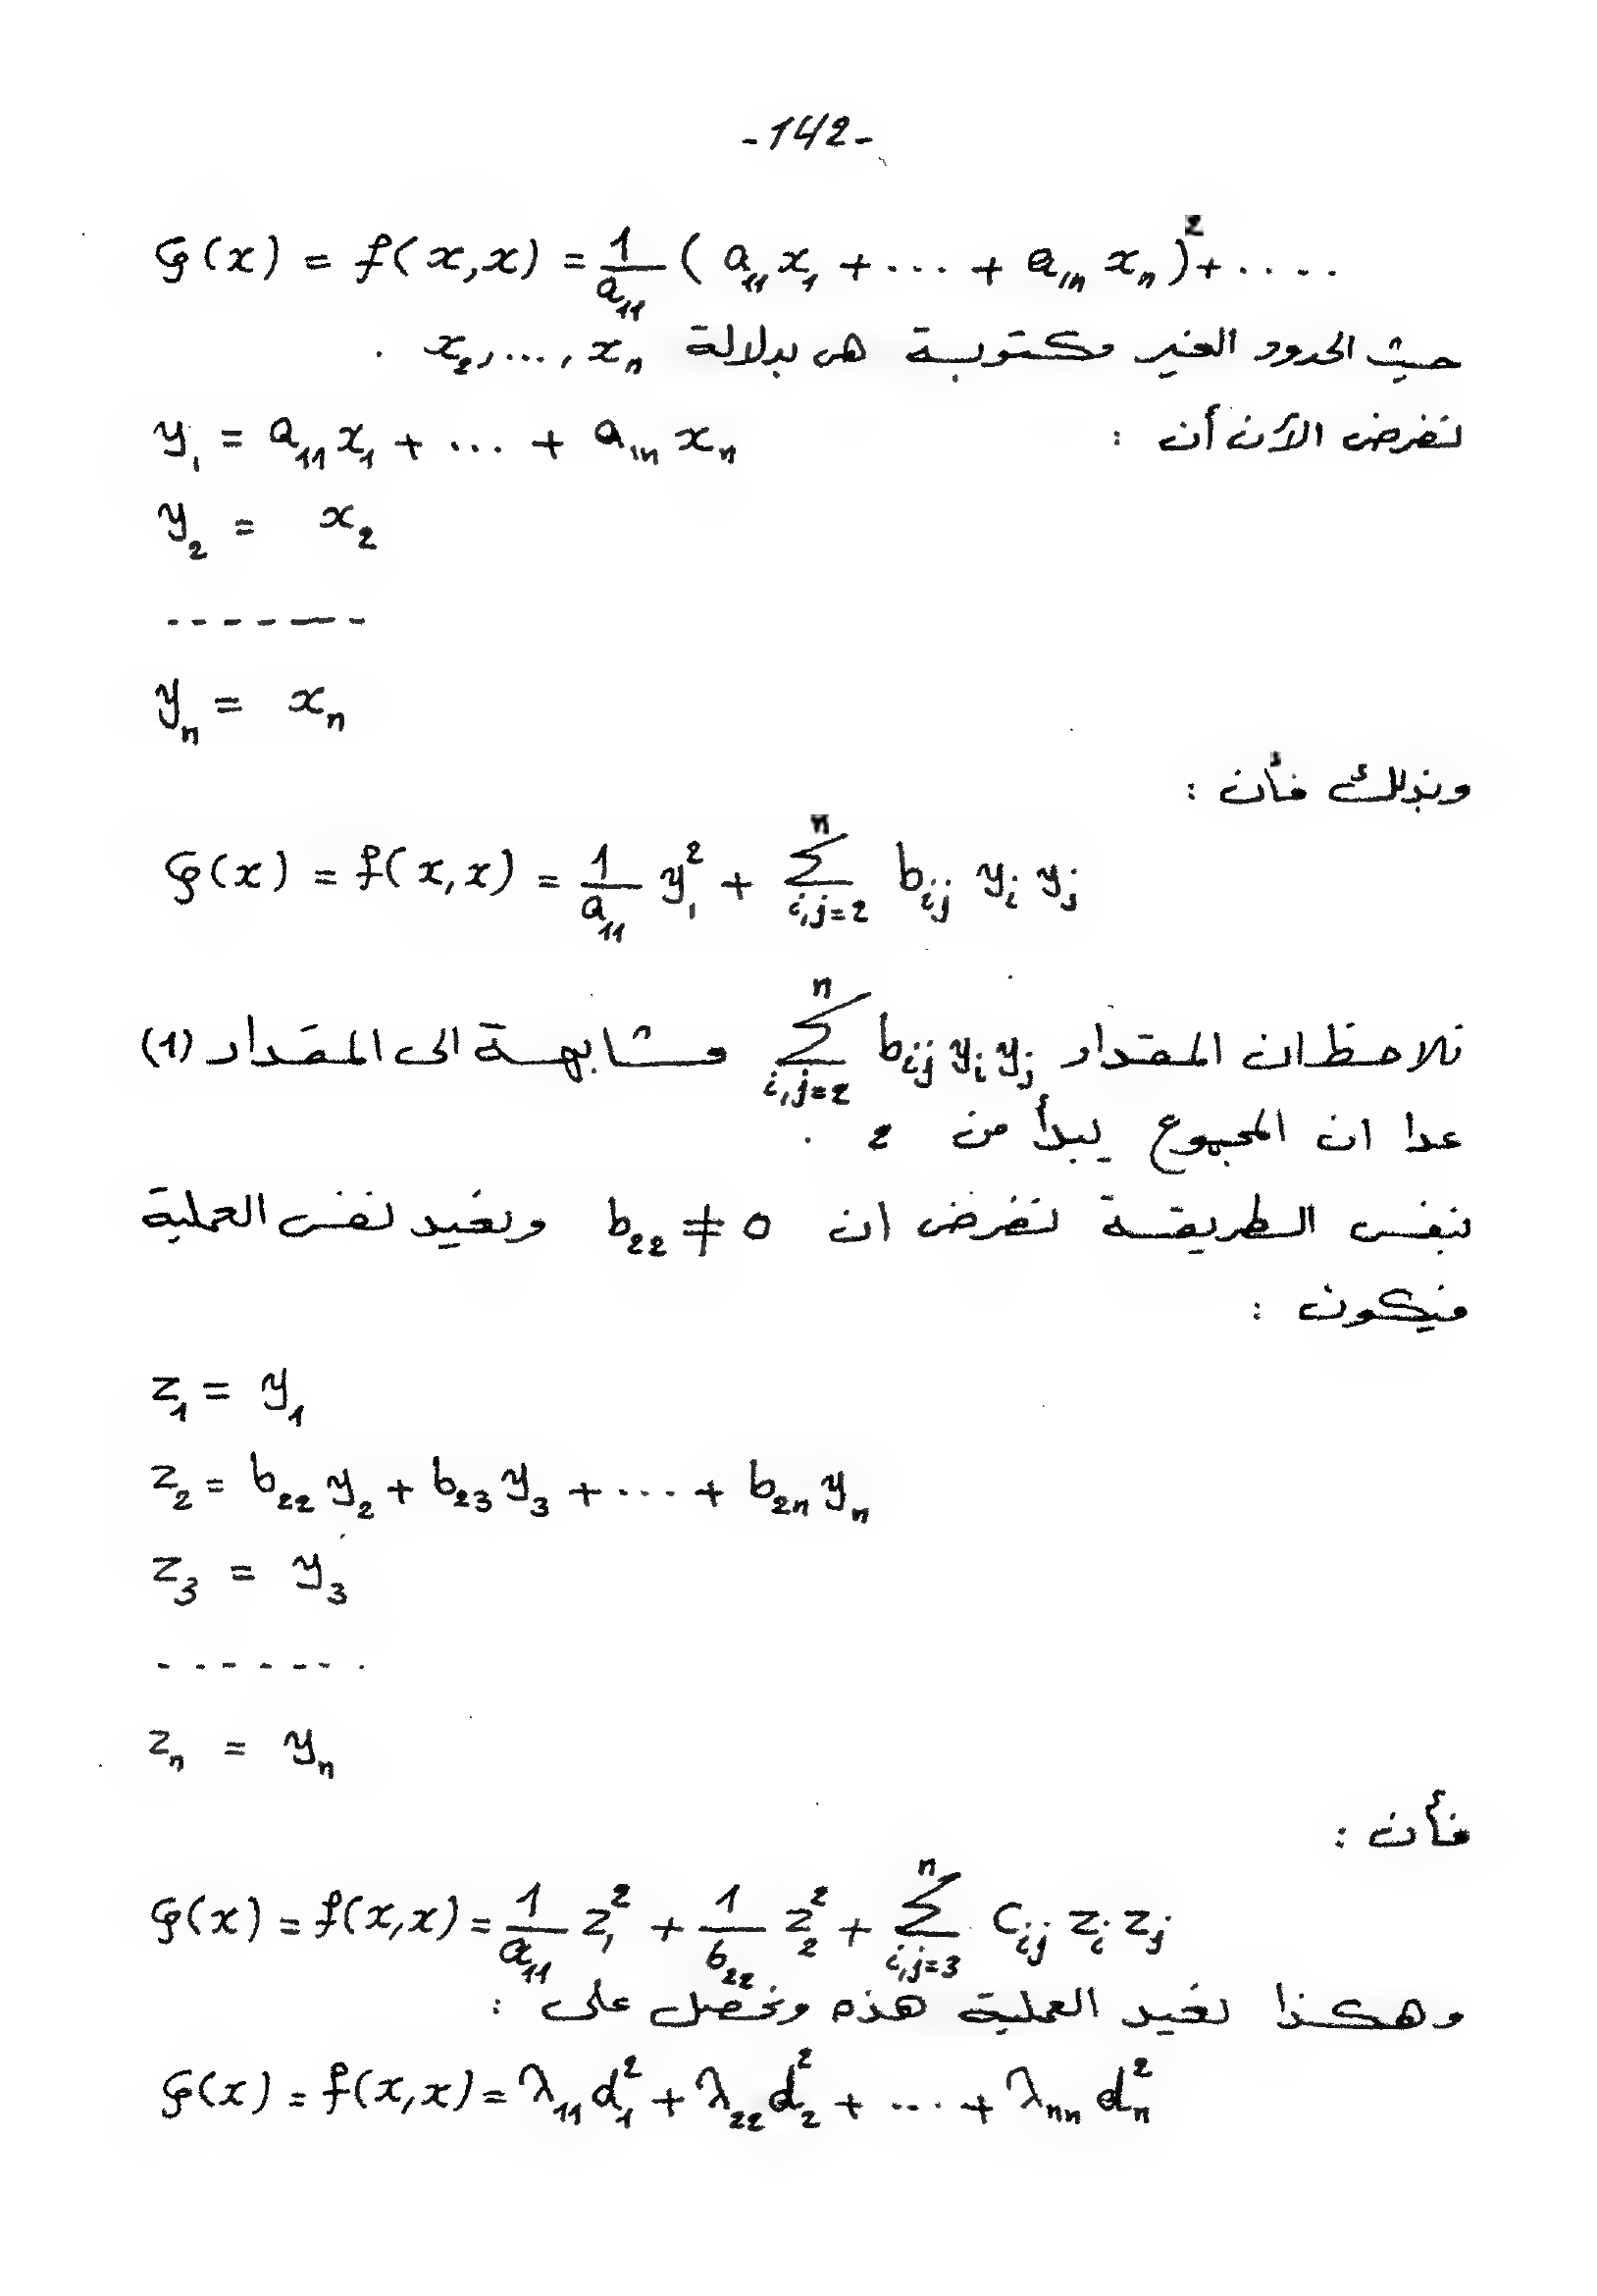 -142-
φ(x) = f(x,x) = 1/a₁₁ ( a₁₁x₁ + ... + a₁ₙ xₙ)² + .....
حيث الحدود الغير مكتوبة هي بدلالة x₂, ..., xₙ .
نفرض الآن أن : y₁ = a₁₁x₁ + ... + a₁ₙ xₙ
y₂ = x₂
-------
yₙ = xₙ
وبذلك فأن :
φ(x) = f(x,x) = 1/a₁₁ y₁² + Σⁿ_{i,j=2} b_{ij} y_i y_j
نلاحظ ان المقدار Σⁿ_{i,j=2} b_{ij} y_i y_j مشابهة الى المقدار (1)
عدا ان المجموع يبدأ من 2 .
بنفس الطريقة نفرض ان b₂₂ ≠ 0 ونعيد نفس العملية
فيكون :
z₁ = y₁
z₂ = b₂₂ y₂ + b₂₃ y₃ + ... + b₂ₙ yₙ
z₃ = y₃
-------
zₙ = yₙ
فأن :
φ(x) = f(x,x) = 1/a₁₁ z₁² + 1/b₂₂ z₂² + Σⁿ_{i,j=3} c_{ij} z_i z_j
وهكذا نعيد العملية هذه ونحصل على :
φ(x) = f(x,x) = λ₁₁d₁² + λ₂₂d₂² + ... + λₙₙ dₙ²